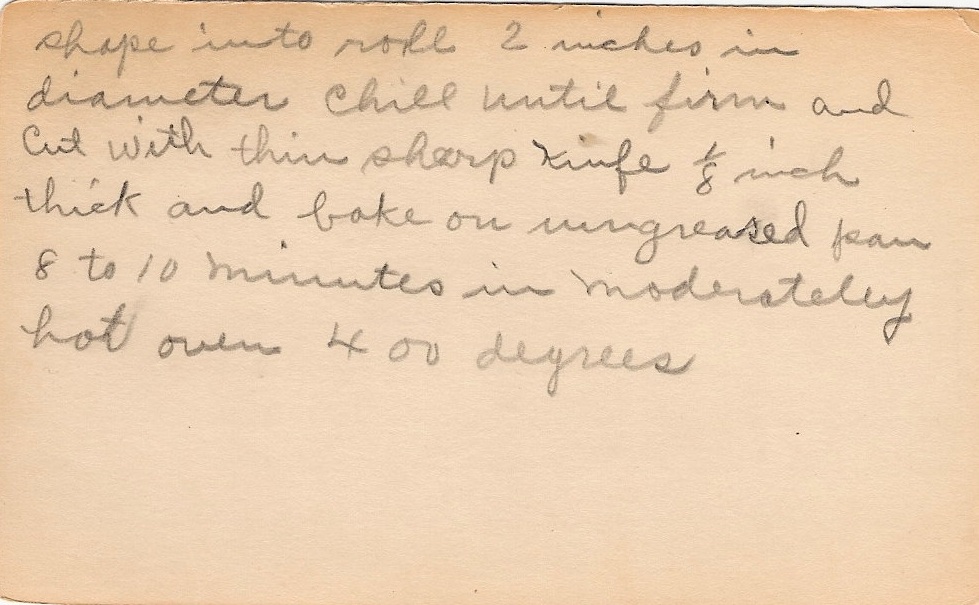 shape into roll 2 inches in
diameter Chill until firm and
Cut with thin sharp knife 1/8 inch
thick and bake on ungreased pan
8 to 10 minutes in moderately
hot oven 400 degrees